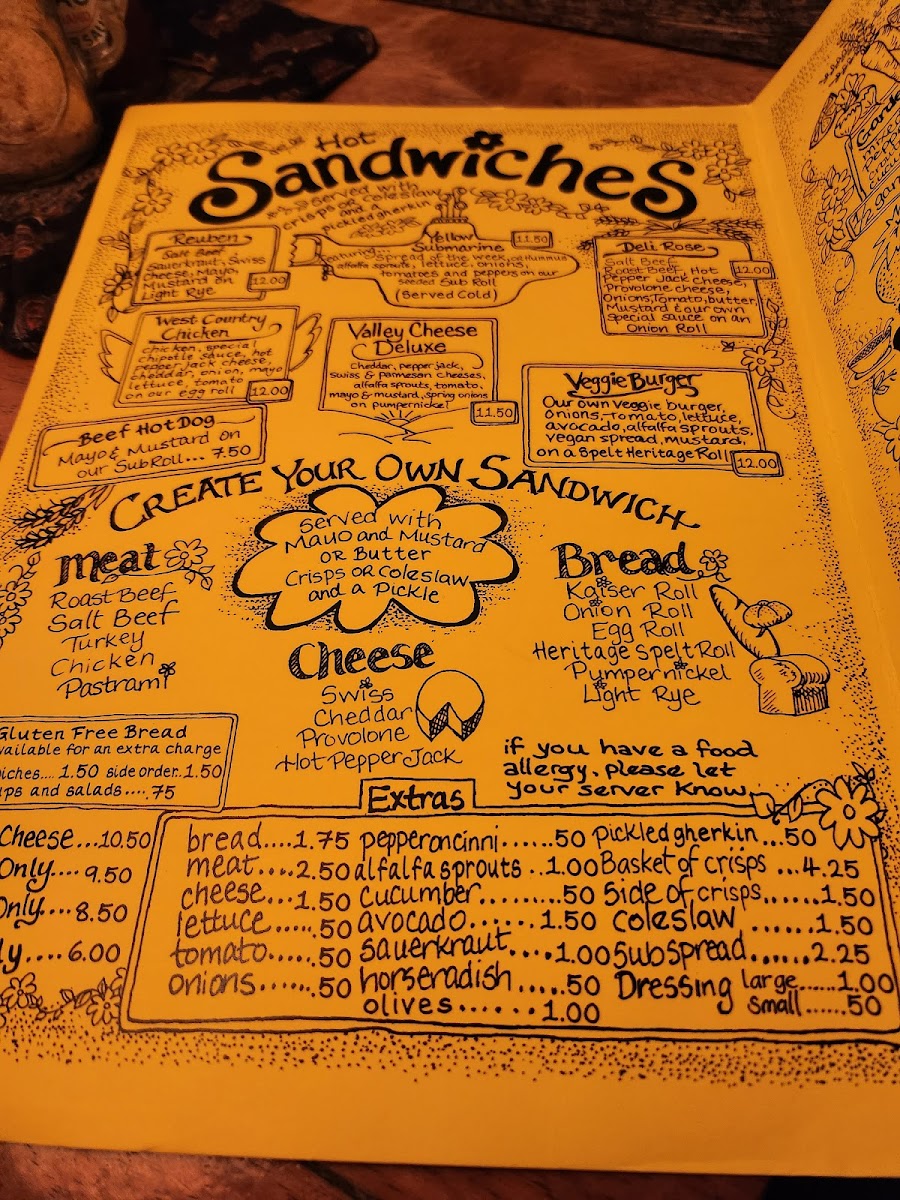 Hot
Sandwiches
served with
crisps or coleslaw
and a
pickled gherkin
Reuben
Salt Beef
Sauerkraut, Swiss
cheese, Mayo,
Mustard on
Light Rye
12.00
Yellow
Submarine
11.50
Featuring spread of the week, eat Hummus
alfalfa sprouts, lettuce, onions,
tomatoes and peppers on our
seeded Sub Roll
(Served Cold)
Deli Rose
Salt Beef
Roast Beef, Hot
Pepper Jack cheese,
Provolone cheese,
Onions, Tomato, butter
Mustard & our own
special sauce on an
Onion Roll
12.00
West Country
Chicken
chicken, special
chipotle sauce, hot
pepper Jack cheese,
cheddar, onion, mayo
lettuce, tomato
on our egg roll
12.00
Valley Cheese
Deluxe
Cheddar, pepper jack,
Swiss & Parmesan Cheeses,
alfalfa sprouts, tomato,
mayo & mustard, spring onions
on pumpernickel
11.50
Veggie Burger
Our own veggie burger,
onions, tomato, lettuce,
avocado, alfalfa sprouts,
vegan spread, mustard,
on a Spelt Heritage Roll
12.00
Beef Hot Dog
Mayo & Mustard on
our Sub Roll... 7.50
CREATE YOUR OWN SANDWICH
Served with
Mayo and Mustard
OR Butter
Crisps OR Coleslaw
and a Pickle
Meat
Roast Beef
Salt Beef
Turkey
Chicken
Pastrami
Cheese
Swiss
Cheddar
Provolone
Hot Pepper Jack
Bread
Kaiser Roll
Onion Roll
Egg Roll
Heritage Spelt Roll
Pumpernickel
Light Rye
Gluten Free Bread
vailable for an extra charge
iches.... 1.50 side order..1.50
ups and salads.....75
if you have a food
allergy. please let
your server know
Cheese...10.50
Only.... 9.50
Only.... 8.50
ly.... 6.00
Extras
bread....1.75
meat....2.50
cheese...1.50
lettuce.....50
tomato.....50
onions......50
pepperoncinni......50
alfalfa sprouts ..1.00
cucumber........50
avocado...... 1.50
sauerkraut....1.00
horseradish.....50
olives.......1.00
Pickled gherkin...50
Basket of crisps ...4.25
Side of crisps......1.50
coleslaw ......1.50
Sub Spread......2.25
Dressing large......1.00
small.....50